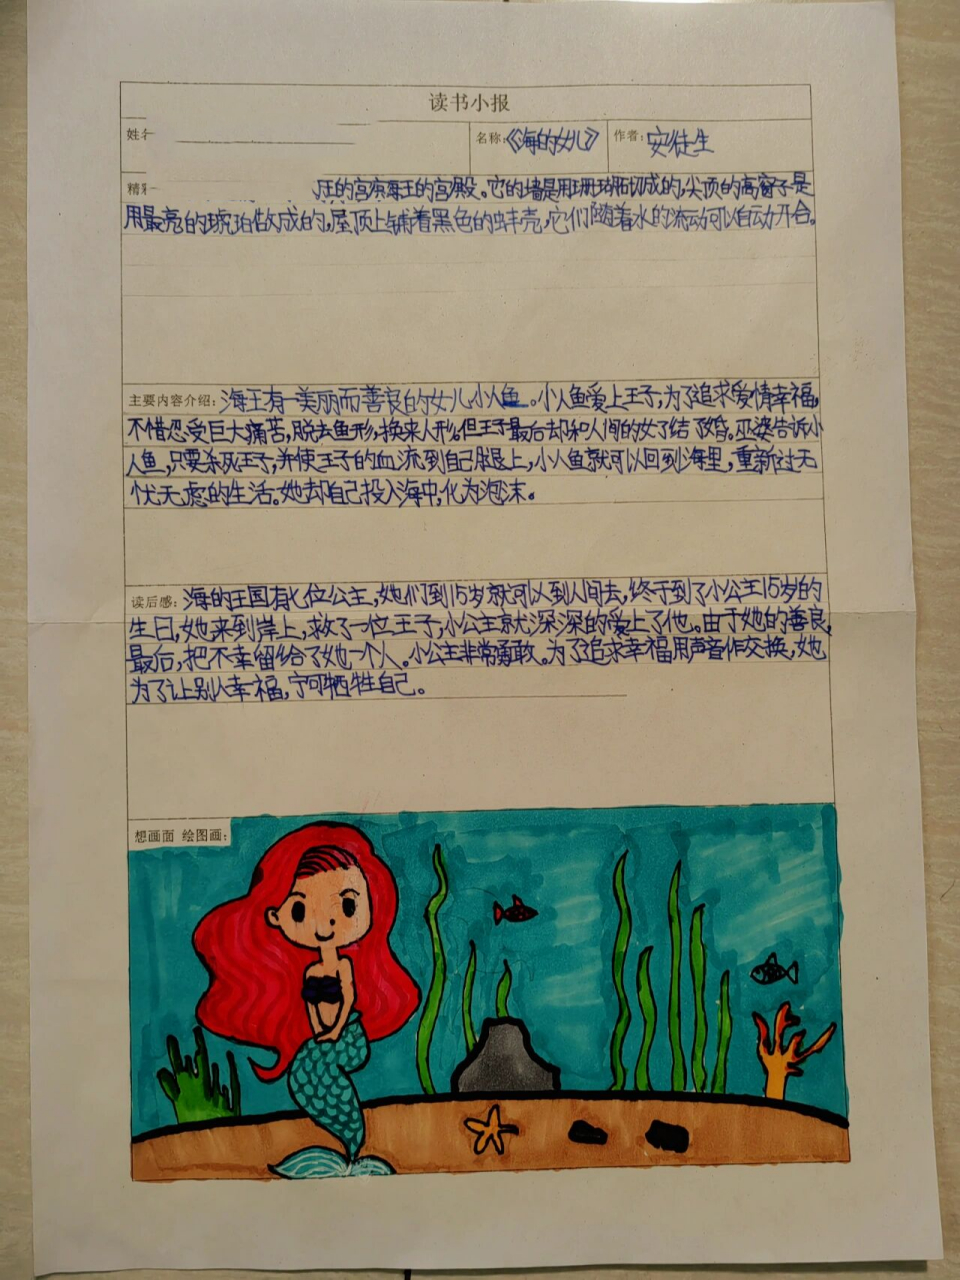 读书小报
姓名
名称：《海的女儿》
作者：安徒生
王的宫殿。它的墙是用珊瑚砌成的,尖顶的高窗子是
用最亮的琥珀做成的,屋顶上铺着黑色的蚌壳,它们随着水的流动可以自动开合。
主要内容介绍：海王有一美丽而善良的女儿小人鱼。小人鱼爱上王子,为了追求爱情幸福,
不惜忍受巨大痛苦,脱去鱼形,换来人形。但王子最后却和人间的女子结了婚。巫婆告诉小
人鱼,只要杀死王子,并使王子的血流到自己腿上,小人鱼就可以回到海里,重新过无
忧无虑的生活。她却自己投入海中,化为泡沫。
读后感：海的王国有七位公主,她们到15岁就可以到人间去,终于到了小公主15岁的
生日,她来到岸上,救了一位王子,小公主就深深的爱上了他。由于她的善良,
最后,把不幸留给了她一个人。小公主非常勇敢。为了追求幸福用声音作交换,她
为了让别人幸福,宁可牺牲自己。
想画面 绘图画：